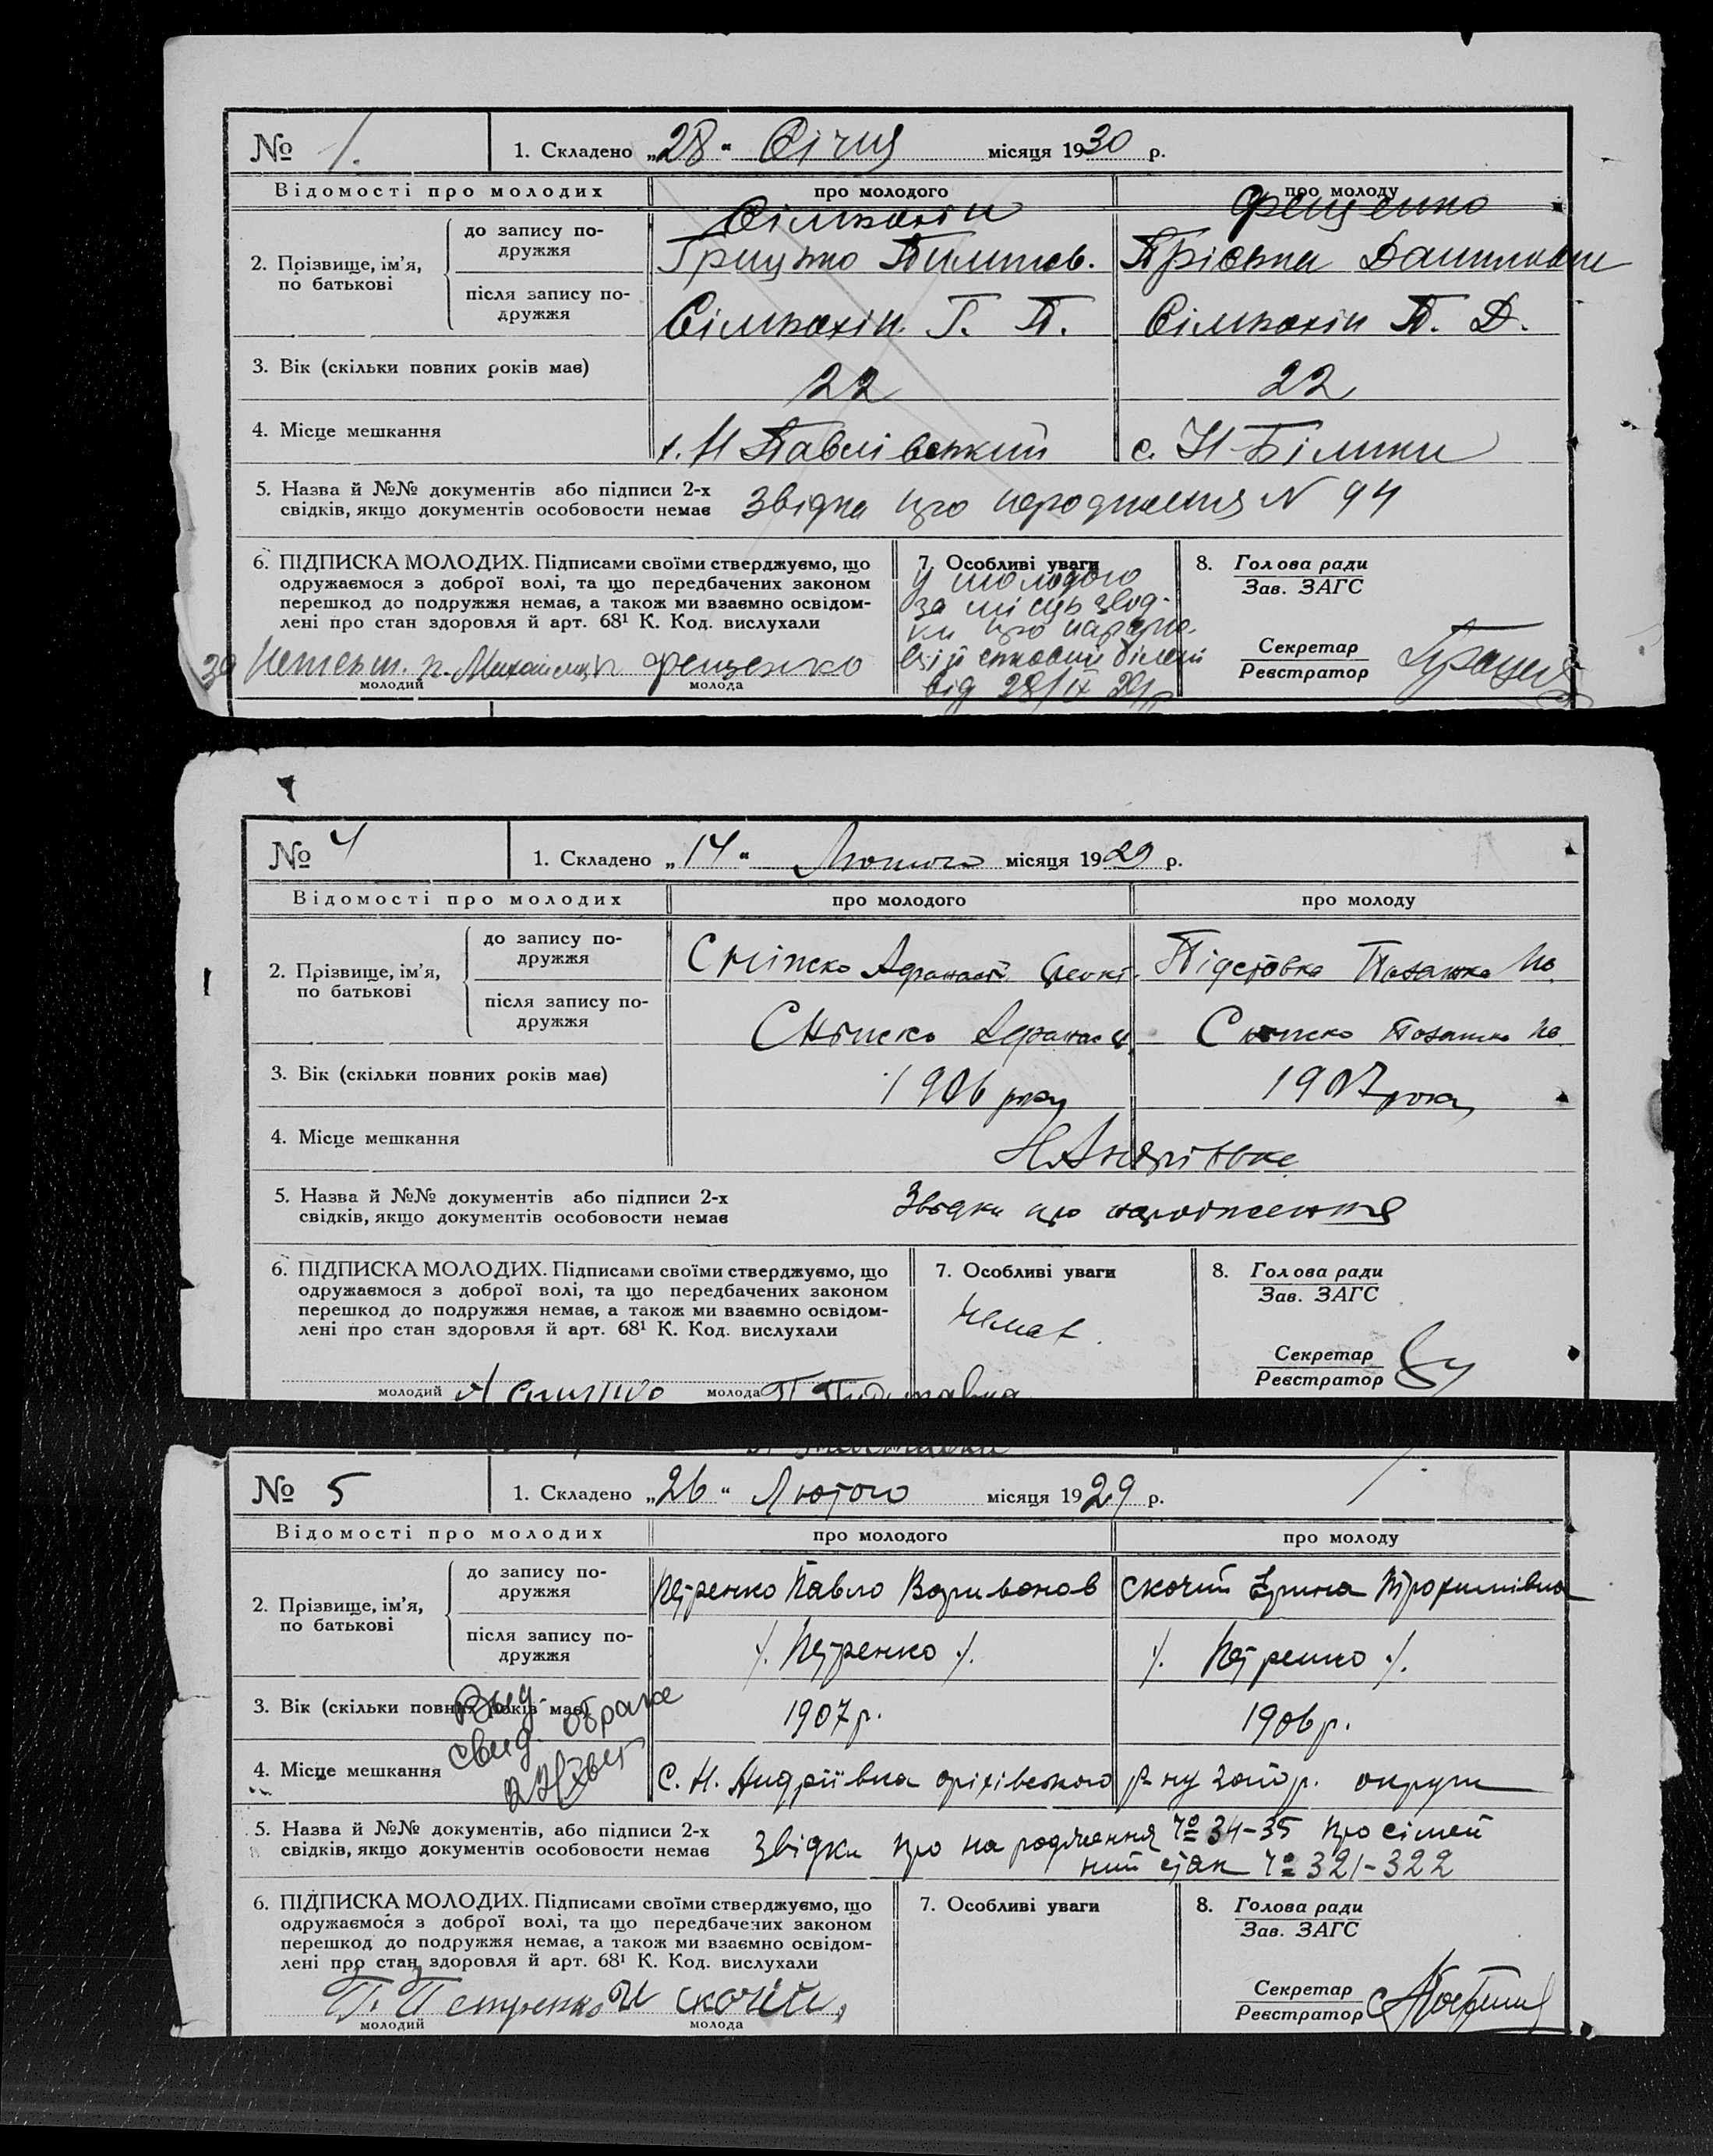 № 1. 1. Складено „28“ Січня місяця 1930 р.
Відомості про молодих про молодого про молоду
2. Прізвище, ім’я, по батькові
до запису подружжя
Фещенко
Грицько Пилипов. Пріська Данилівни
після запису подружжя
Г. П. П. Д.
3. Вік (скільки повних років має) 22 22
4. Місце мешкання х. Н Павлівський с. Н-Білики
5. Назва й №№ документів або підписи 2-х
свідків, якщо документів особовости немає Звідка про народження N 94
6. ПІДПИСКА МОЛОДИХ. Підписами своїми стверджуємо, що
одружаємося з доброї волі, та що передбачених законом
перешкод до подружжя немає, а також ми взаємно освідом-
лені про стан здоровля й арт. 68¹ К. Код. вислухали
за Фещенко
молодий молода
7. Особливі уваги
У молодого
за місць звод-
ки про народже.
білет
від 28/IX 29р
8. Голова ради
Зав. ЗАГС
Секретар
Реєстратор
№ 4 1. Складено „14“ Лютого місяця 1929 р.
Відомості про молодих про молодого про молоду
2. Прізвище, ім’я, по батькові
до запису подружжя
Сніпко Афанасій Підставка Палажка
після запису подружжя
Сніпко Афанас Сніпко Палажка
3. Вік (скільки повних років має) 1906 року 1907 року
4. Місце мешкання Н.Андріївка
5. Назва й №№ документів або підписи 2-х
свідків, якщо документів особовости немає Звідки про народження
6. ПІДПИСКА МОЛОДИХ. Підписами своїми стверджуємо, що
одружаємося з доброї волі, та що передбачених законом
перешкод до подружжя немає, а також ми взаємно освідом-
лені про стан здоровля й арт. 68¹ К. Код. вислухали
молодий молода
7. Особливі уваги
Немає.
8. Голова ради
Зав. ЗАГС
Секретар
Реєстратор
№ 5 1. Складено „26“ Лютого місяця 1929 р.
Відомості про молодих про молодого про молоду
2. Прізвище, ім’я, по батькові
до запису подружжя
Петренко Павло Варивонов Скочий Єрина Трохимівна
після запису подружжя
/. Петренко /. /. Петренко /.
3. Вік (скільки повних років має) 1907 р. 1906 р.
Выд.
свид. о браке
4. Місце мешкання С. Н. Андріївка оріхівського р-ну запор. округи
5. Назва й №№ документів, або підписи 2-х
свідків, якщо документів особовости немає Звідки про народження № 34-35 про сімей
ний стан № 321-322
6. ПІДПИСКА МОЛОДИХ. Підписами своїми стверджуємо, що
одружаємося з доброї волі, та що передбачених законом
перешкод до подружжя немає, а також ми взаємно освідом-
лені про стан здоровля й арт. 68¹ К. Код. вислухали
П. Петренко И скочій
молодий молода
7. Особливі уваги
8. Голова ради
Зав. ЗАГС
Секретар
Реєстратор